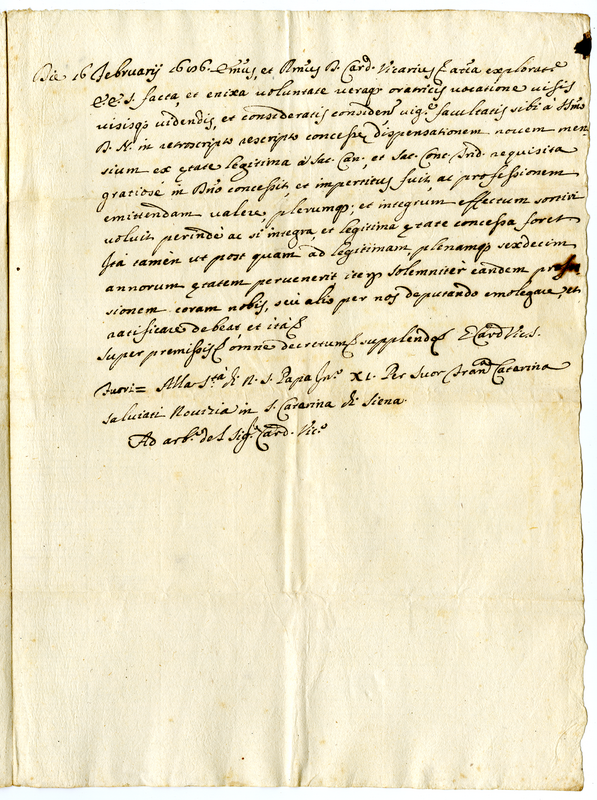 Die 16 Februarij 1696. Emus, et Rmus D. Card. Vicarius facta explorate
&c. facta, et enixa voluntate veraq oratricis vocatione visis
visisq videndis, et consideratis consideran vig.e facultatis sibi à Smo
D. N. in retroscripto rescripto concesse dispensationem novem men
sium ex etate legitima à Sac. Can, et Sac. Conc. Trid. requisita
gratiosè in Dno concessit, et impertitus fuit, ac professionem
emittendam valere, plerumq, et integrum effectum sortiri
voluit perindè ac si integra, et legitima etate concessa foret
Ità tamen ut post quam ad legitimam plenamq sexdecim
annorum etatem pervenerit iterum solemnitèr eandem profes
sionem coram nobis, seu alio per nos deputando emologare, et
ratificare debeat, et ita
super premissis omne decretum supplendo ECardVic.s.
Fuori= Alla S.tà di N. S. Papa In.o XI. Per Suor Fran.a Catarina
Salviati Novizia in S. Catarina di Siena.
Ad arb.o del Sig.r Card. Vic.o